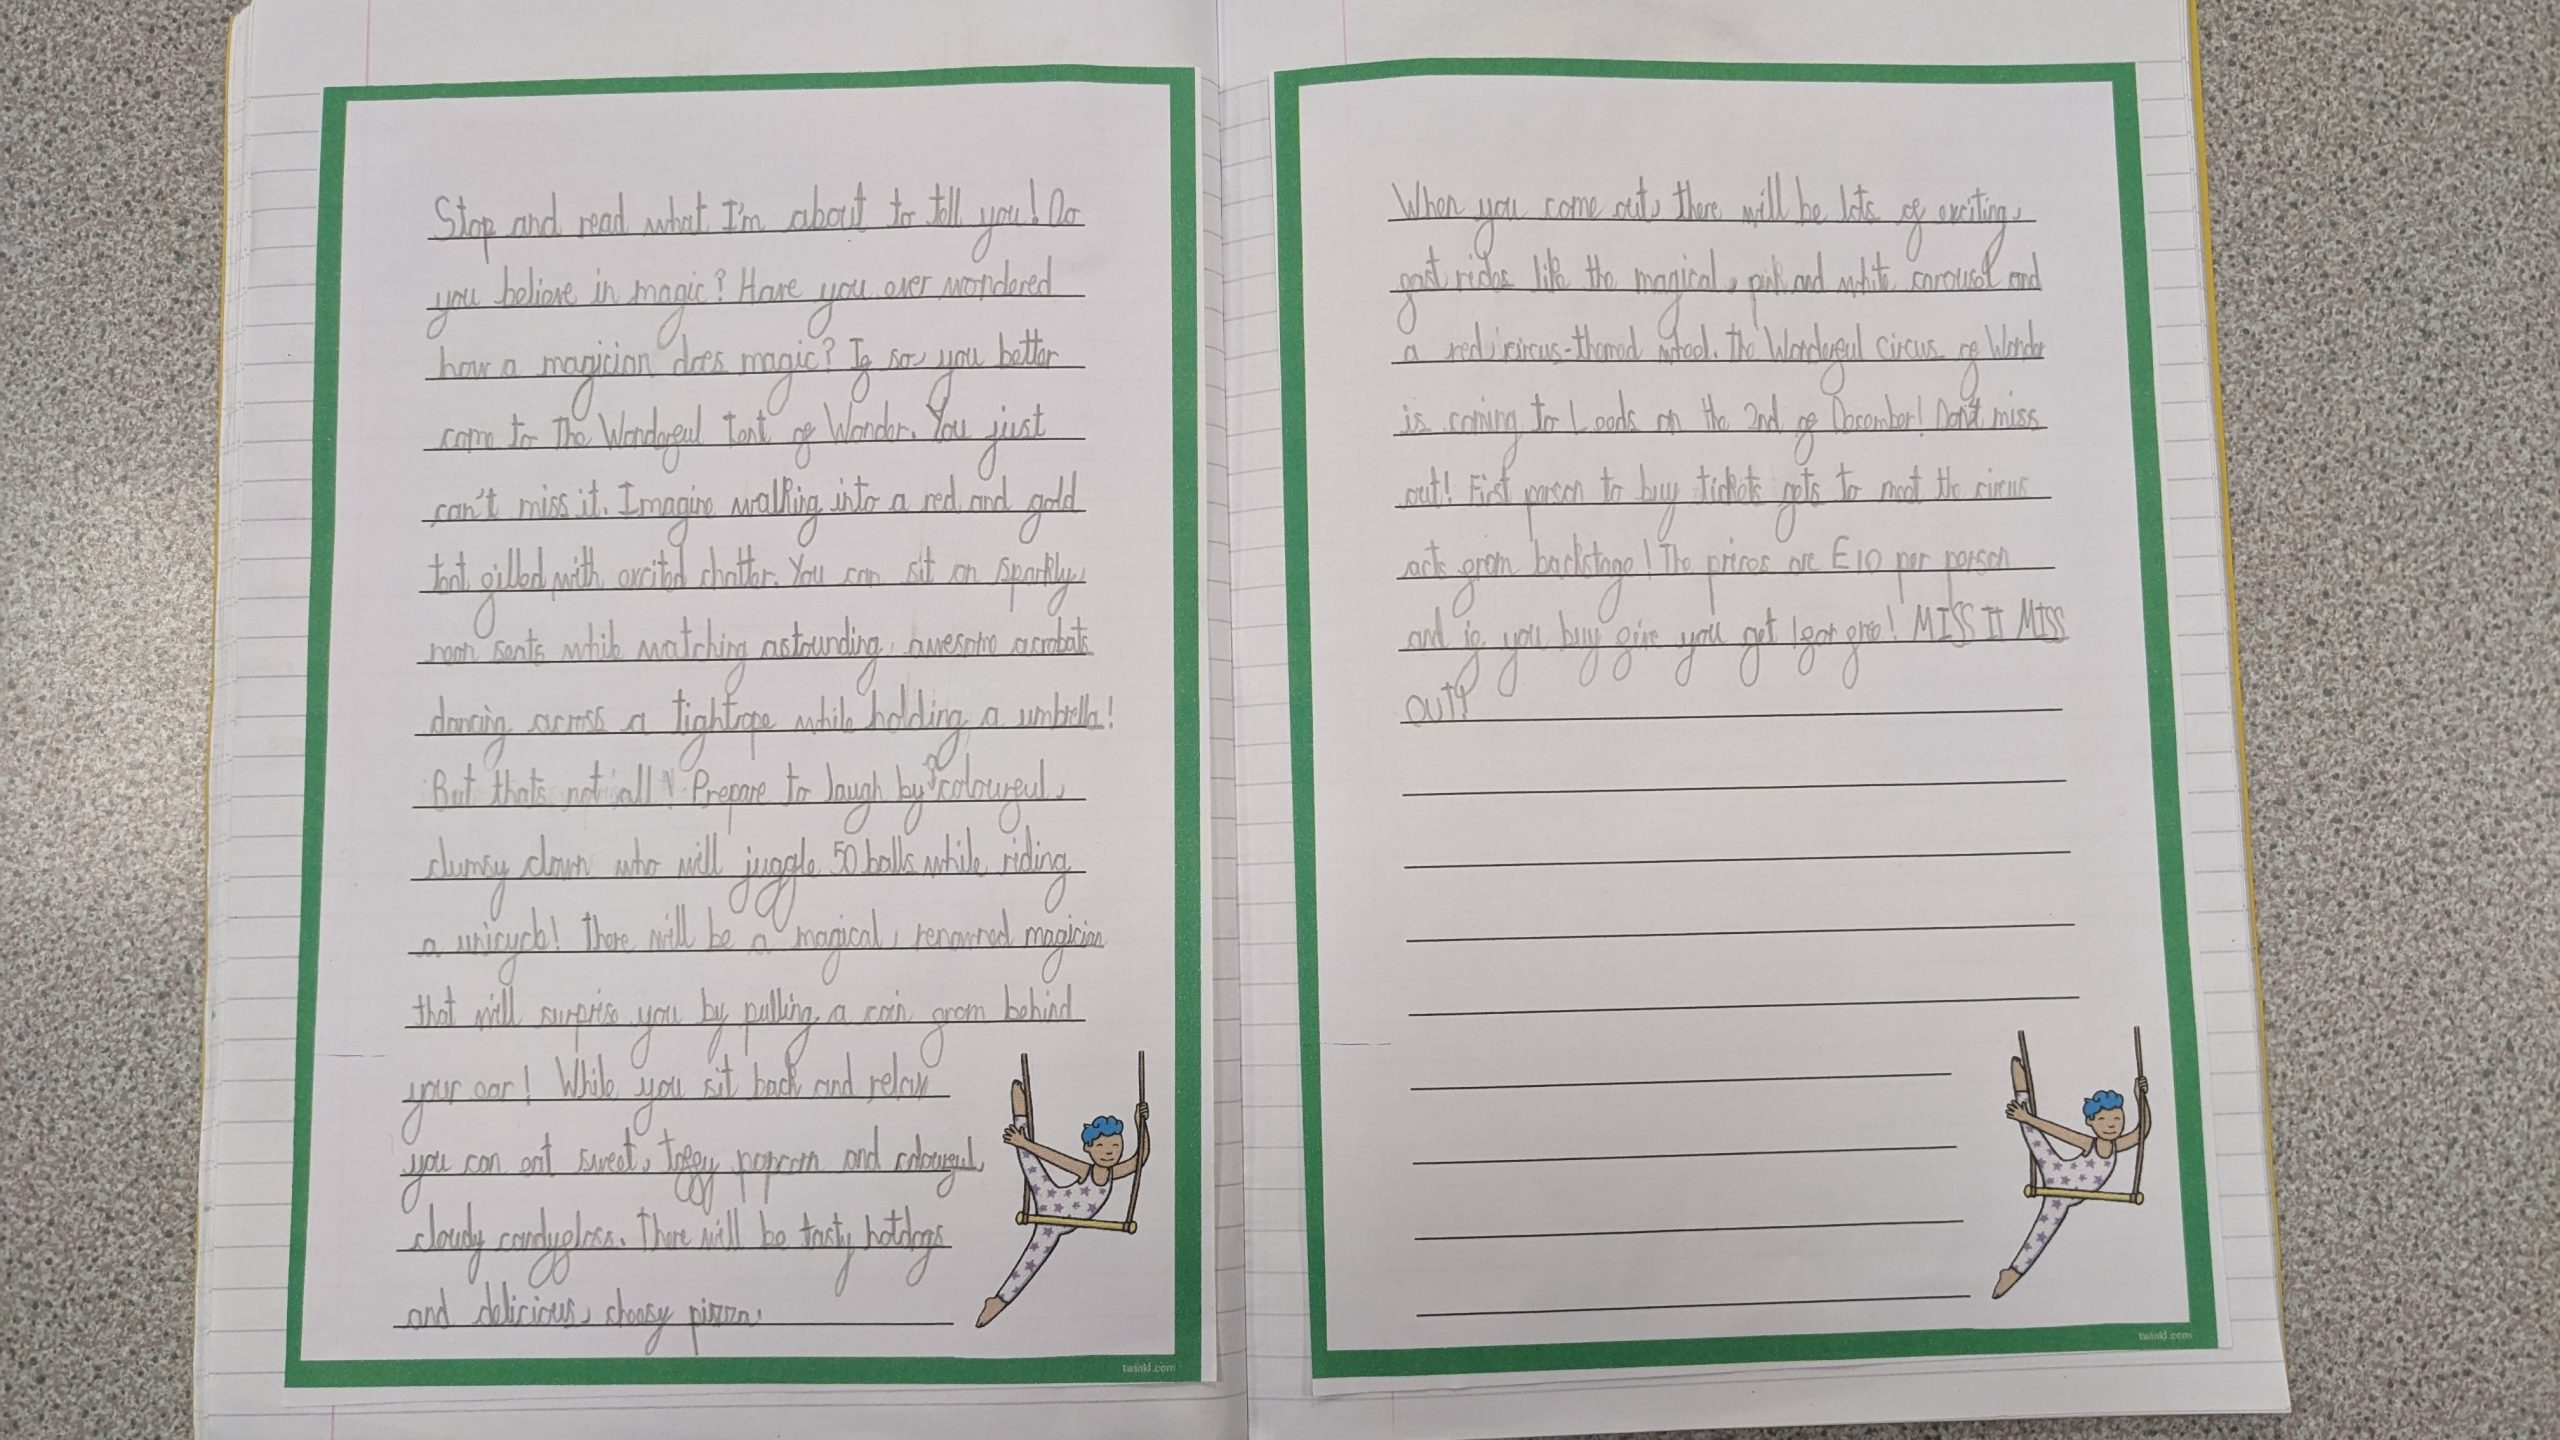 Stop and read what I'm about to tell you! Do
you believe in magic? Have you ever wondered
how a magician does magic? If so, you better
come to The Wonderful Tent of Wonder. You just
can't miss it. Imagine walking into a red and gold
tent filled with excited chatter. You can sit on sparkly,
neon seats while watching astounding, awesome acrobats
dancing across a tightrope while holding a umbrella!
But that's not all! Prepare to laugh by a colourful,
clumsy clown who will juggle 50 balls while riding
a unicycle! There will be a magical, renowned magician
that will surprise you by pulling a coin from behind
your ear! While you sit back and relax
you can eat sweet, toffy popcorn and colourful,
cloudy candyfloss. There will be tasty hotdogs
and delicious, cheesy pizza.
twinkl.com
When you come out, there will be lots of exciting,
fast rides like the magical, pink and white carousel and
a red, circus-themed wheel. The Wonderful Circus of Wonder
is coming to Leeds on the 2nd of December! Don't miss
out! First person to buy tickets gets to meet the circus
acts from backstage! The prices are £10 per person
and if you buy five you get 1 for free! MISS IT MISS
OUT!
twinkl.com